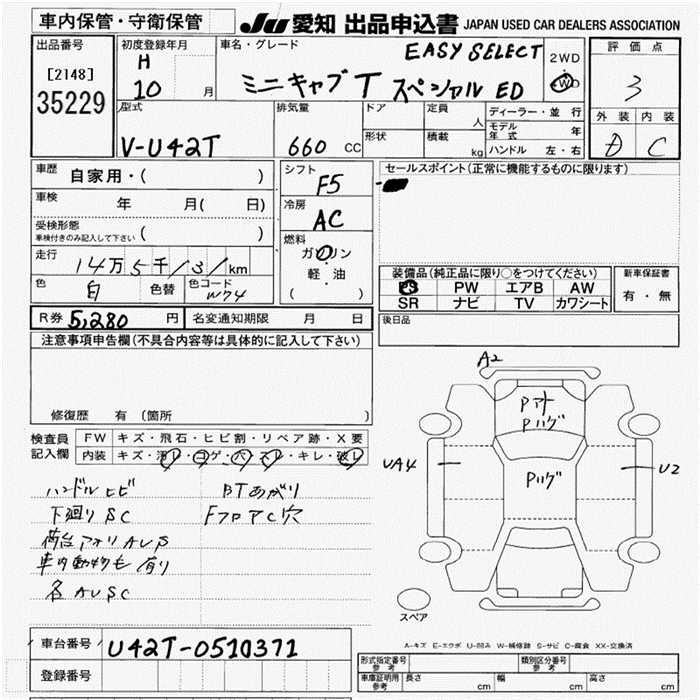 車内保管・守衛保管
JU 愛知 出品申込書 JAPAN USED CAR DEALERS ASSOCIATION
出品番号
[2148]
35229
初度登録年月
H
10 月
車名・グレード
EASY SELECT
ミニキャブT スペシャル ED
2WD
4WD
評価点
3
外装 内装
D C
型式
V-U42T
排気量
660 CC
ドア
形状
定員 人
積載 kg
ディーラー・並行
モデル年式 年
ハンドル 左・右
車歴
自家用・( )
車検 年 月( 日)
受検形態
車検付きのみ記入して下さい ( )
走行
14万5千131km
色 白
色替
色コード W74
シフト
F5
冷房
AC
燃料
ガソリン
軽・油
( )
セールスポイント(正常に機能するものに限ります)
装備品(純正品に限り○をつけてください)
PS PW エアB AW
SR ナビ TV カワシート
新車保証書
有・無
R券 5,280 円
名変通知期限 月 日
後日品
注意事項申告欄(不具合内容等は具体的に記入して下さい)
修復歴 有(箇所 )
検査員記入欄
FW キズ・飛石・ヒビ割・リペア跡・X要
内装 キズ・汚レ・コゲ・穴・スレ・キレ・破レ
ハンドルヒビ
BTあがり
下廻りSC
FフロアC穴
荷台アオリAUS
車内動物毛有り
各AUSC
A2
Pアト
Pハゲ
Pハゲ
UA4
U2
スペア
A-キズ E-エクボ U-凹み W-補修跡 S-サビ C-腐食 XX-交換済
車台番号 U42T-0510371
登録番号
形式指定番号
参考
類別区分番号
参考
車庫証明用
参考
長さ cm
幅 cm
高さ cm